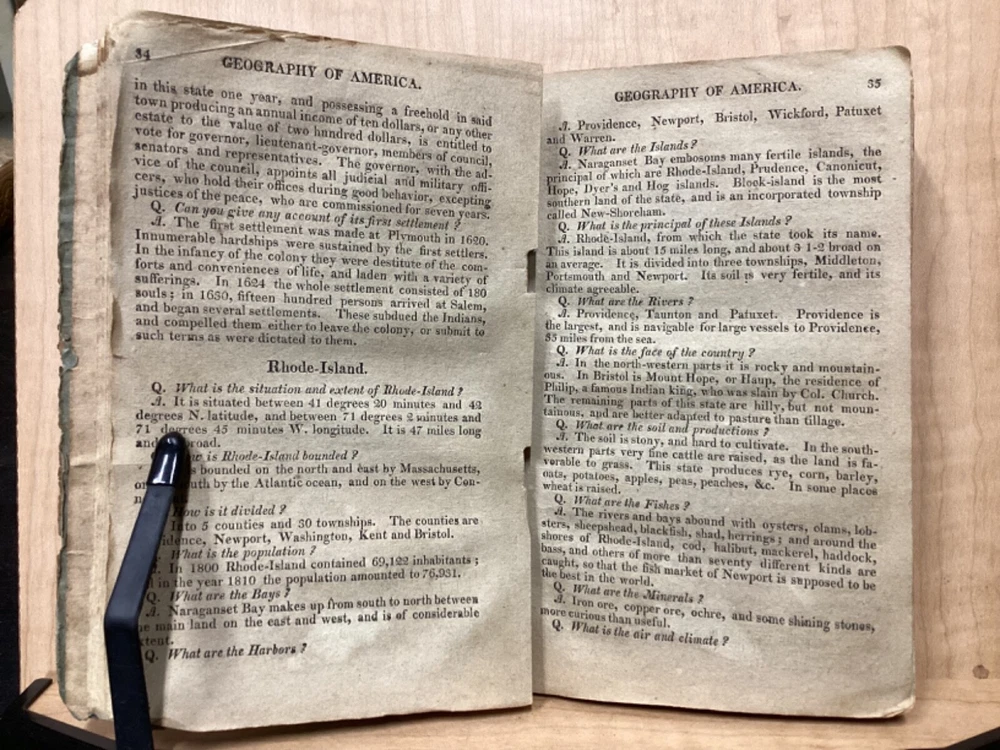 34
GEOGRAPHY OF AMERICA.
in this state one year, and possessing a freehold in said
town producing an annual income of ten dollars, or any other
estate to the value of two hundred dollars, is entitled to
vote for governor, lieutenant-governor, members of council,
senators and representatives. The governor, with the ad-
vice of the council, appoints all judicial and military offi-
cers, who hold their offices during good behavior, excepting
justices of the peace, who are commissioned for seven years.
Q. Can you give any account of its first settlement?
A. The first settlement was made at Plymouth in 1620.
Innumerable hardships were sustained by the first settlers.
In the infancy of the colony they were destitute of the com-
forts and conveniences of life, and laden with a variety of
sufferings. In 1624 the whole settlement consisted of 180
souls; in 1630, fifteen hundred persons arrived at Salem,
and began several settlements. These subdued the Indians,
and compelled them either to leave the colony, or submit to
such terms as were dictated to them.
Rhode-Island.
Q. What is the situation and extent of Rhode-Island?
A. It is situated between 41 degrees 20 minutes and 42
degrees N. latitude, and between 71 degrees 2 minutes and
71 degrees 45 minutes W. longitude. It is 47 miles long
and road.
is Rhode-Island bounded?
bounded on the north and east by Massachusetts,
by the Atlantic ocean, and on the west by Con-
How is it divided?
Into 5 counties and 30 townships. The counties are
idence, Newport, Washington, Kent and Bristol.
What is the population?
In 1800 Rhode-Island contained 69,122 inhabitants;
in the year 1810 the population amounted to 76,931.
Q. What are the Bays?
A. Naraganset Bay makes up from south to north between
main land on the east and west, and is of considerable
xtent.
Q. What are the Harbors?
GEOGRAPHY OF AMERICA. 35
A. Providence, Newport, Bristol, Wickford, Patuxet
and Warren.
Q. What are the Islands?
A. Naraganset Bay embosoms many fertile islands, the
principal of which are Rhode-Island, Prudence, Canonicut,
Hope, Dyer's and Hog islands. Block-island is the most
southern land of the state, and is an incorporated township
called New-Shoreham.
Q. What is the principal of these Islands?
A. Rhode-Island, from which the state took its name.
This island is about 15 miles long, and about 3 1-2 broad on
an average. It is divided into three townships, Middleton,
Portsmouth and Newport. Its soil is very fertile, and its
climate agreeable.
Q. What are the Rivers?
A. Providence, Taunton and Patuxet. Providence is
the largest, and is navigable for large vessels to Providence,
35 miles from the sea.
Q. What is the face of the country?
A. In the north-western parts it is rocky and mountain-
ous. In Bristol is Mount Hope, or Haup, the residence of
Philip, a famous Indian king, who was slain by Col. Church.
The remaining parts of this state are hilly, but not moun-
tainous, and are better adapted to pasture than tillage.
Q. What are the soil and productions?
A. The soil is stony, and hard to cultivate. In the south-
western parts very fine cattle are raised, as the land is fa-
vorable to grass. This state produces rye, corn, barley,
oats, potatoes, apples, peas, peaches, &c. In some places
wheat is raised.
Q. What are the Fishes?
A. The rivers and bays abound with oysters, clams, lob-
sters, sheepshead, blackfish, shad, herrings; and around the
shores of Rhode-Island, cod, halibut, mackerel, haddock,
bass, and others of more than seventy different kinds are
caught, so that the fish market of Newport is supposed to be
the best in the world.
Q. What are the Minerals?
A. Iron ore, copper ore, ochre, and some shining stones,
more curious than useful.
Q. What is the air and climate?